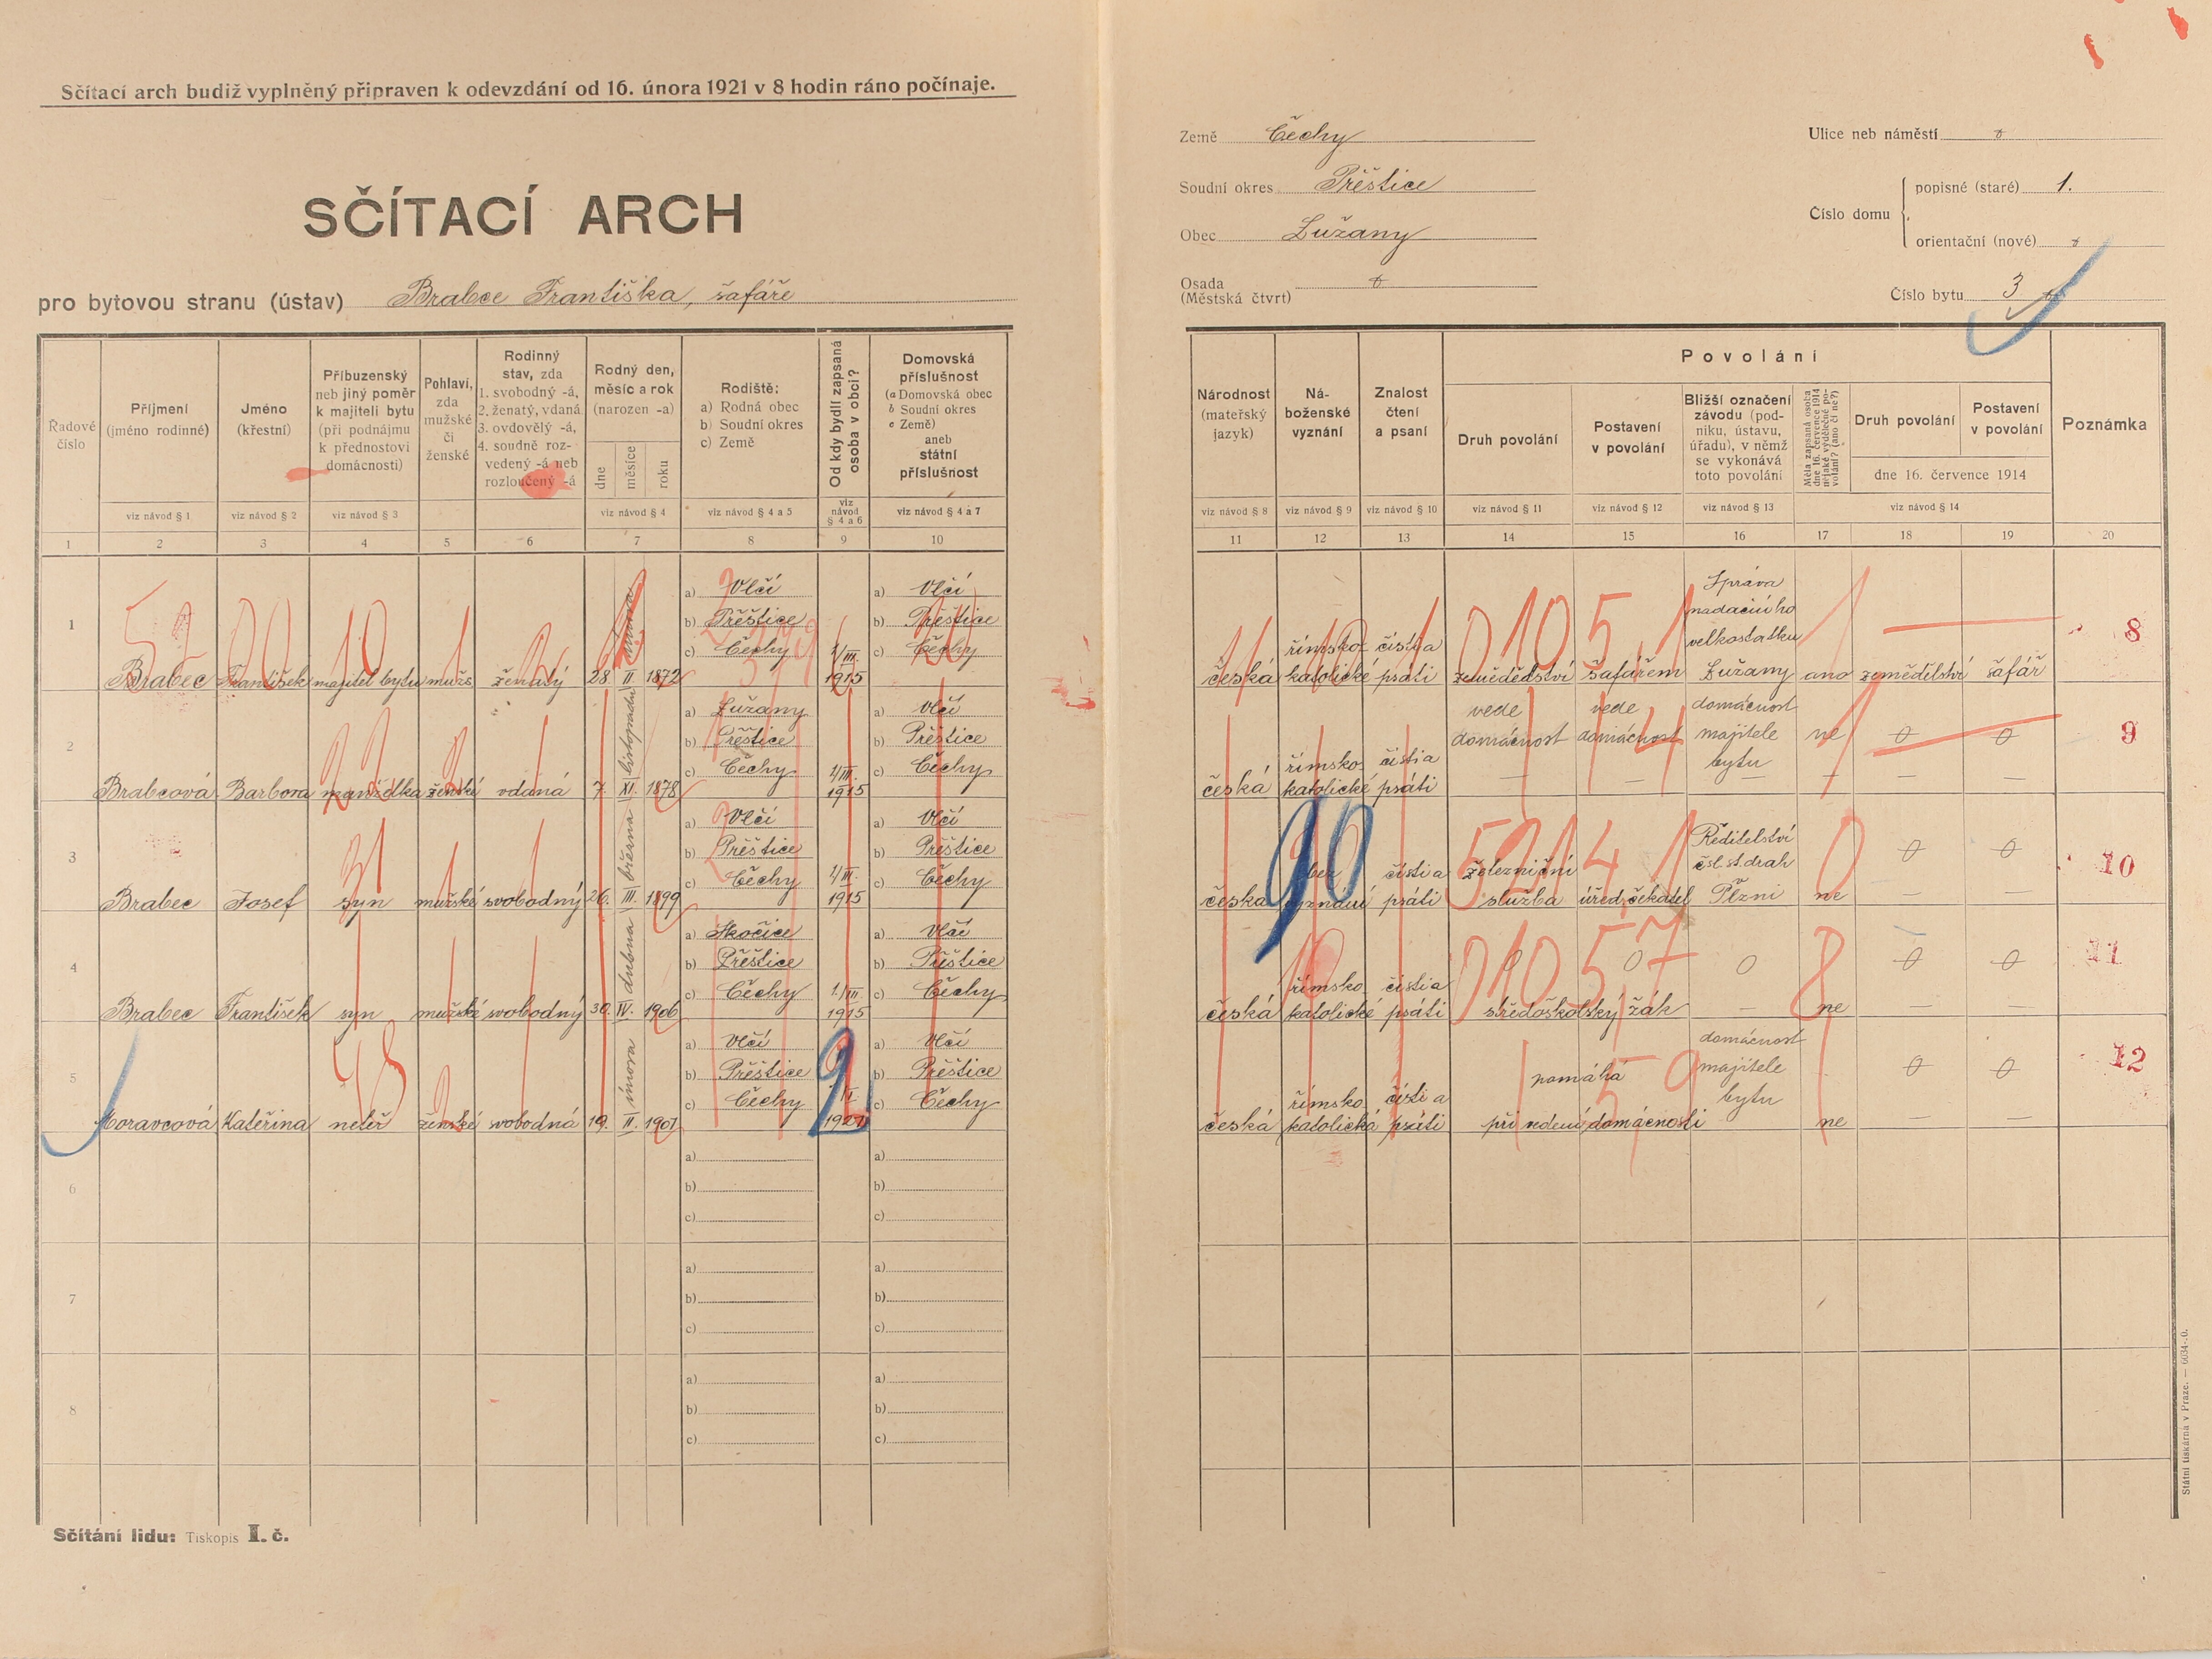 Sčítací arch budiž vyplněný připraven k odevzdání od 16. února 1921 v 8 hodin ráno počínaje.
SČÍTACÍ ARCH
pro bytovou stranu (ústav) Brabce Františka, šafáře
Země Čechy
Soudní okres Přeštice
Obec Lužany
Osada
(Městská čtvrt)
Ulice neb náměstí
Číslo domu
popisné (staré) 1.
orientační (nové)
Číslo bytu 3
Řadové číslo
Příjmení (jméno rodinné)
Jméno (křestní)
Příbuzenský neb jiný poměr k majiteli bytu (při podnájmu k přednostovi domácnosti)
Pohlaví, zda mužské či ženské
Rodinný stav, zda 1. svobodný -á, 2. ženatý, vdaná 3. ovdovělý -á, 4. soudně rozvedený -á neb rozloučený -á
Rodný den, měsíc a rok (narozen -a)
dne měsíce roku
Rodiště:
a) Rodná obec
b) Soudní okres
c) Země
Od kdy bydlí zapsaná osoba v obci?
Domovská příslušnost
(a Domovská obec
b Soudní okres
c Země)
aneb státní příslušnost
viz návod § 1 viz návod § 2 viz návod § 3 viz návod § 4 viz návod § 4 a 5 viz návod § 4 a 6 viz návod § 4 a 7
1 2 3 4 5 6 7 8 9 10
Národnost (mateřský jazyk)
Náboženské vyznání
Znalost čtení a psaní
Povolání
Druh povolání
Postavení v povolání
Bližší označení závodu (podniku, ústavu, úřadu), v němž se vykonává toto povolání
Měla zapsaná osoba dne 16. července 1914 nějaké výdělečné povolání? (ano či ne?)
Druh povolání
Postavení v povolání
dne 16. července 1914
Poznámka
viz návod § 8 viz návod § 9 viz návod § 10 viz návod § 11 viz návod § 12 viz návod § 13 viz návod § 14
11 12 13 14 15 16 17 18 19 20
1 Brabec František majitel bytu mužs. ženatý 28. II. února 1872
a) Vlčí
b) Přeštice
c) Čechy
1/III. 1915
a) Vlčí
b) Přeštice
c) Čechy
česká římsko-katolické čísti a psáti zemědělství šafářem Správa nadačního velkostatku Lužany ano zemědělství šafář 8
2 Brabcová Barbora manželka ženské vdaná 7. XI. listopadu 1878
a) Lužany
b) Přeštice
c) Čechy
1/III. 1915
a) Vlčí
b) Přeštice
c) Čechy
česká římsko-katolické čísti a psáti vede domácnost vede domácnost domácnost majitele bytu ne 0 0 9
3 Brabec Josef syn mužské svobodný 26. III. března 1899
a) Vlčí
b) Přeštice
c) Čechy
1/III. 1915
a) Vlčí
b) Přeštice
c) Čechy
česká bez vyznání čísti a psáti železniční služba úřed. čekatel Ředitelství čsl. st. drah Plzni ne 0 0 10
4 Brabec František syn mužské svobodný 30. IV. dubna 1906
a) Skočice
b) Přeštice
c) Čechy
1./III. 1915
a) Vlčí
b) Přeštice
c) Čechy
česká římsko katolické čísti a psáti 0 0 0 středoškolský žák ne 0 0 11
5 Moravcová Kateřina neteř ženské svobodná 19. II. února 1901
a) Vlčí
b) Přeštice
c) Čechy
a) Vlčí
b) Přeštice
c) Čechy
česká římsko katolická čísti a psáti pomáhá při vedení domácnosti domácnost majitele bytu ne 0 0 12
6
a)
b)
c)
a)
b)
c)
7
a)
b)
c)
a)
b)
c)
8
a)
b)
c)
a)
b)
c)
Sčítání lidu: Tiskopis I. č.
Státní tiskárna v Praze. — 6634-.0.